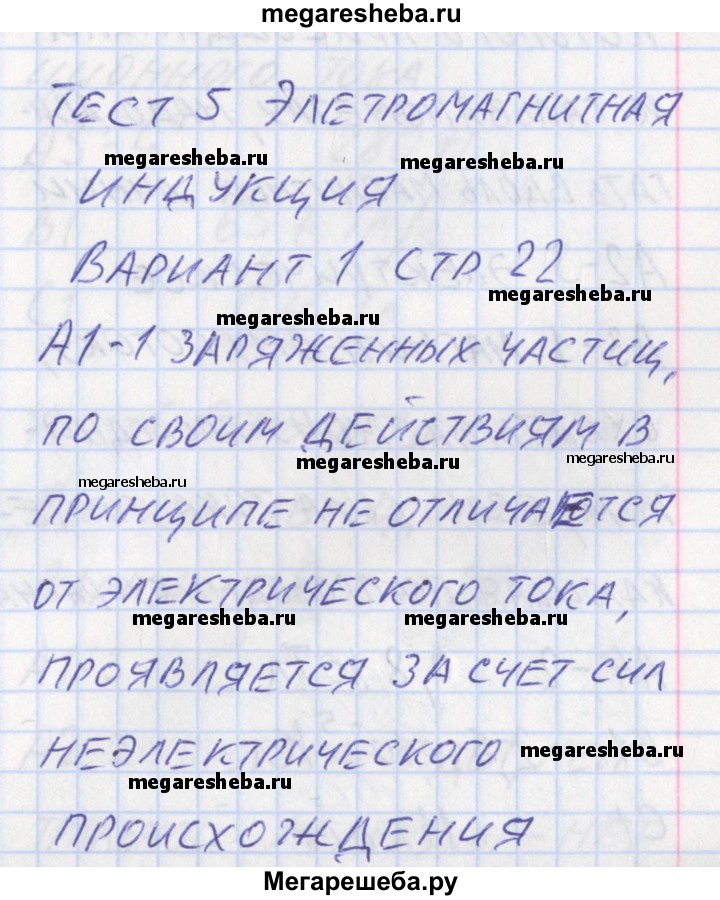 megaresheba.ru
ТЕСТ 5 ЭЛЕТРОМАГНИТНАЯ
megaresheba.ru megaresheba.ru
ИНДУКЦИЯ
ВАРИАНТ 1 СТР 22
megaresheba.ru
megaresheba.ru
А1-1 ЗАРЯЖЕННЫХ ЧАСТИЦ,
ПО СВОИМ ДЕЙСТВИЯМ В
megaresheba.ru megaresheba.ru
megaresheba.ru
ПРИНЦИПЕ НЕ ОТЛИЧАЕТСЯ
ОТ ЭЛЕКТРИЧЕСКОГО ТОКА,
megaresheba.ru megaresheba.ru
ПРОЯВЛЯЕТСЯ ЗА СЧЕТ СИЛ
НЕЭЛЕКТРИЧЕСКОГО megaresheba.ru
megaresheba.ru
ПРОИСХОЖДЕНИЯ
Мегарешеба.ру